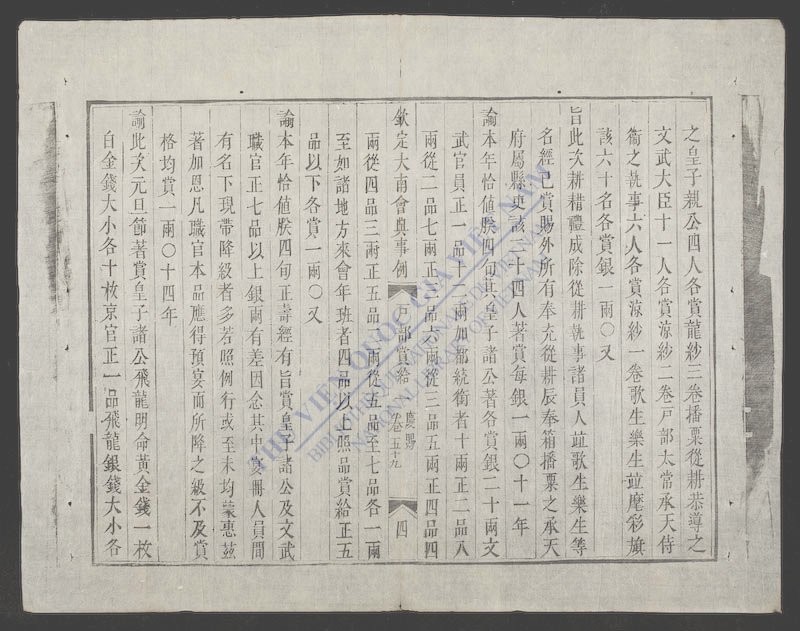 之皇子親公四人各賞龍紗三卷播粟從耕恭導之
文武大臣十一人各賞涼紗二卷戸部太常承天侍
衞之執事六人各賞涼紗一卷歌生樂生竝麾彩旗
該六十名各賞銀一兩〇又
旨此次耕耤禮成除從耕執事諸員人竝歌生樂生等
名經已賞賜外所有奉充從耕辰奉箱播粟之承天
府屬縣吏該二十四人著賞每銀一兩〇十一年
諭本年恰値朕四旬其皇子諸公著各賞銀二十兩文
武官員正一品十二兩加都統銜者十兩正二品八
兩從二品七兩正三品六兩從三品五兩正四品四
欽定大南會典事例 戸部賞給 慶賜 卷五十九 四
兩從四品三兩正五品二兩從五品至七品各一兩
至如諸地方來會年班者四品以上照品賞給正五
品以下各賞一兩〇又
諭本年恰値朕四旬正壽經有旨賞皇子諸公及文武
職官正七品以上銀兩有差因念其中寔冊人員間
有名下現帶降級者多若照例行或至未均蒙惠茲
著加恩凡職官本品應得預宴而所降之級不及賞
格均賞一兩〇十四年
諭此次元旦節著賞皇子諸公飛龍明命黃金錢一枚
白金錢大小各十枚京官正一品飛龍銀錢大小各
THE VIEN QUOC GIA VIET NAM
NATIONAL LIBRARY OF VIETNAM